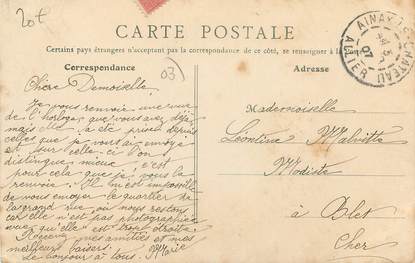 20t
CARTE POSTALE
Certains pays étrangers n'acceptant pas la correspondance de ce côté, se renseigner à la Poste
Correspondance
Adresse
03
AINAY-LE-CHATEAU
07
ALLIER
Chère Demoiselle,
Je vous renvoie une vue
de l'horloge que vous avez déjà
mais elle a été prise depuis
celles que je vous ai envoyé
et sur celle-ci l'on
distingue mieux c'est
pour cela que je vous la
renvoie. Il m'est impossible
de vous envoyer le quartier de
la grand rue, où nous restons
car elle n'est pas photographiée
vue qu'elle est trop droite.
Recevez mes amitiés et mes
meilleurs baisers. Marie
Le bonjour à tous.
Mademoiselle
Léontine
Modiste
à Blet
Cher